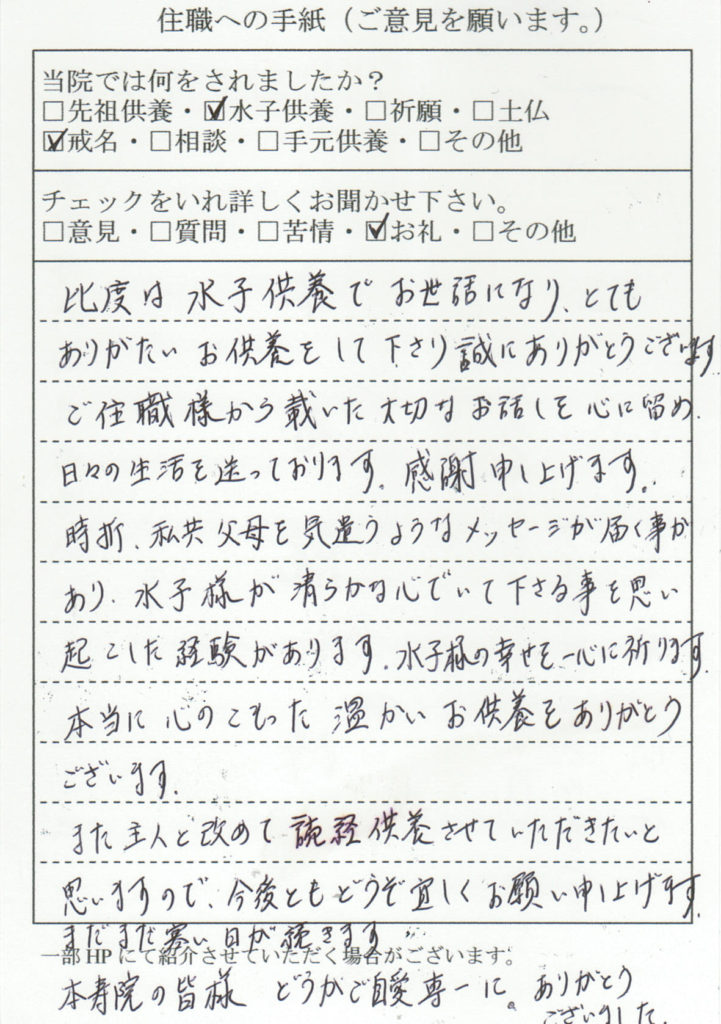 住職への手紙（ご意見を願います。）
当院では何をされましたか？
□先祖供養・☑水子供養・□祈願・□土仏
☑戒名・□相談・□手元供養・□その他
チェックをいれ詳しくお聞かせ下さい。
□意見・□質問・□苦情・☑お礼・□その他
此度は水子供養でお世話になり、とても
ありがたいお供養をして下さり誠にありがとうございます
ご住職様から載いた大切なお話しを心に留め、
日々の生活を送っております。感謝申し上げます。
時折、私共父母を気遣うようなメッセージが届く事が
あり、水子様が清らかな心でいて下さる事を思い
起こした経験があります。水子様の幸せを一心に祈ります。
本当に心のこもった温かいお供養をありがとう
ございます。
また主人と改めて読経供養させていただきたいと
思いますので、今後ともどうぞ宜しくお願い申し上げます。
まだまだ寒い日が続きます
一部HPにて紹介させていただく場合がございます。
本寿院の皆様 どうかご自愛専一に。ありがとう
ございました。